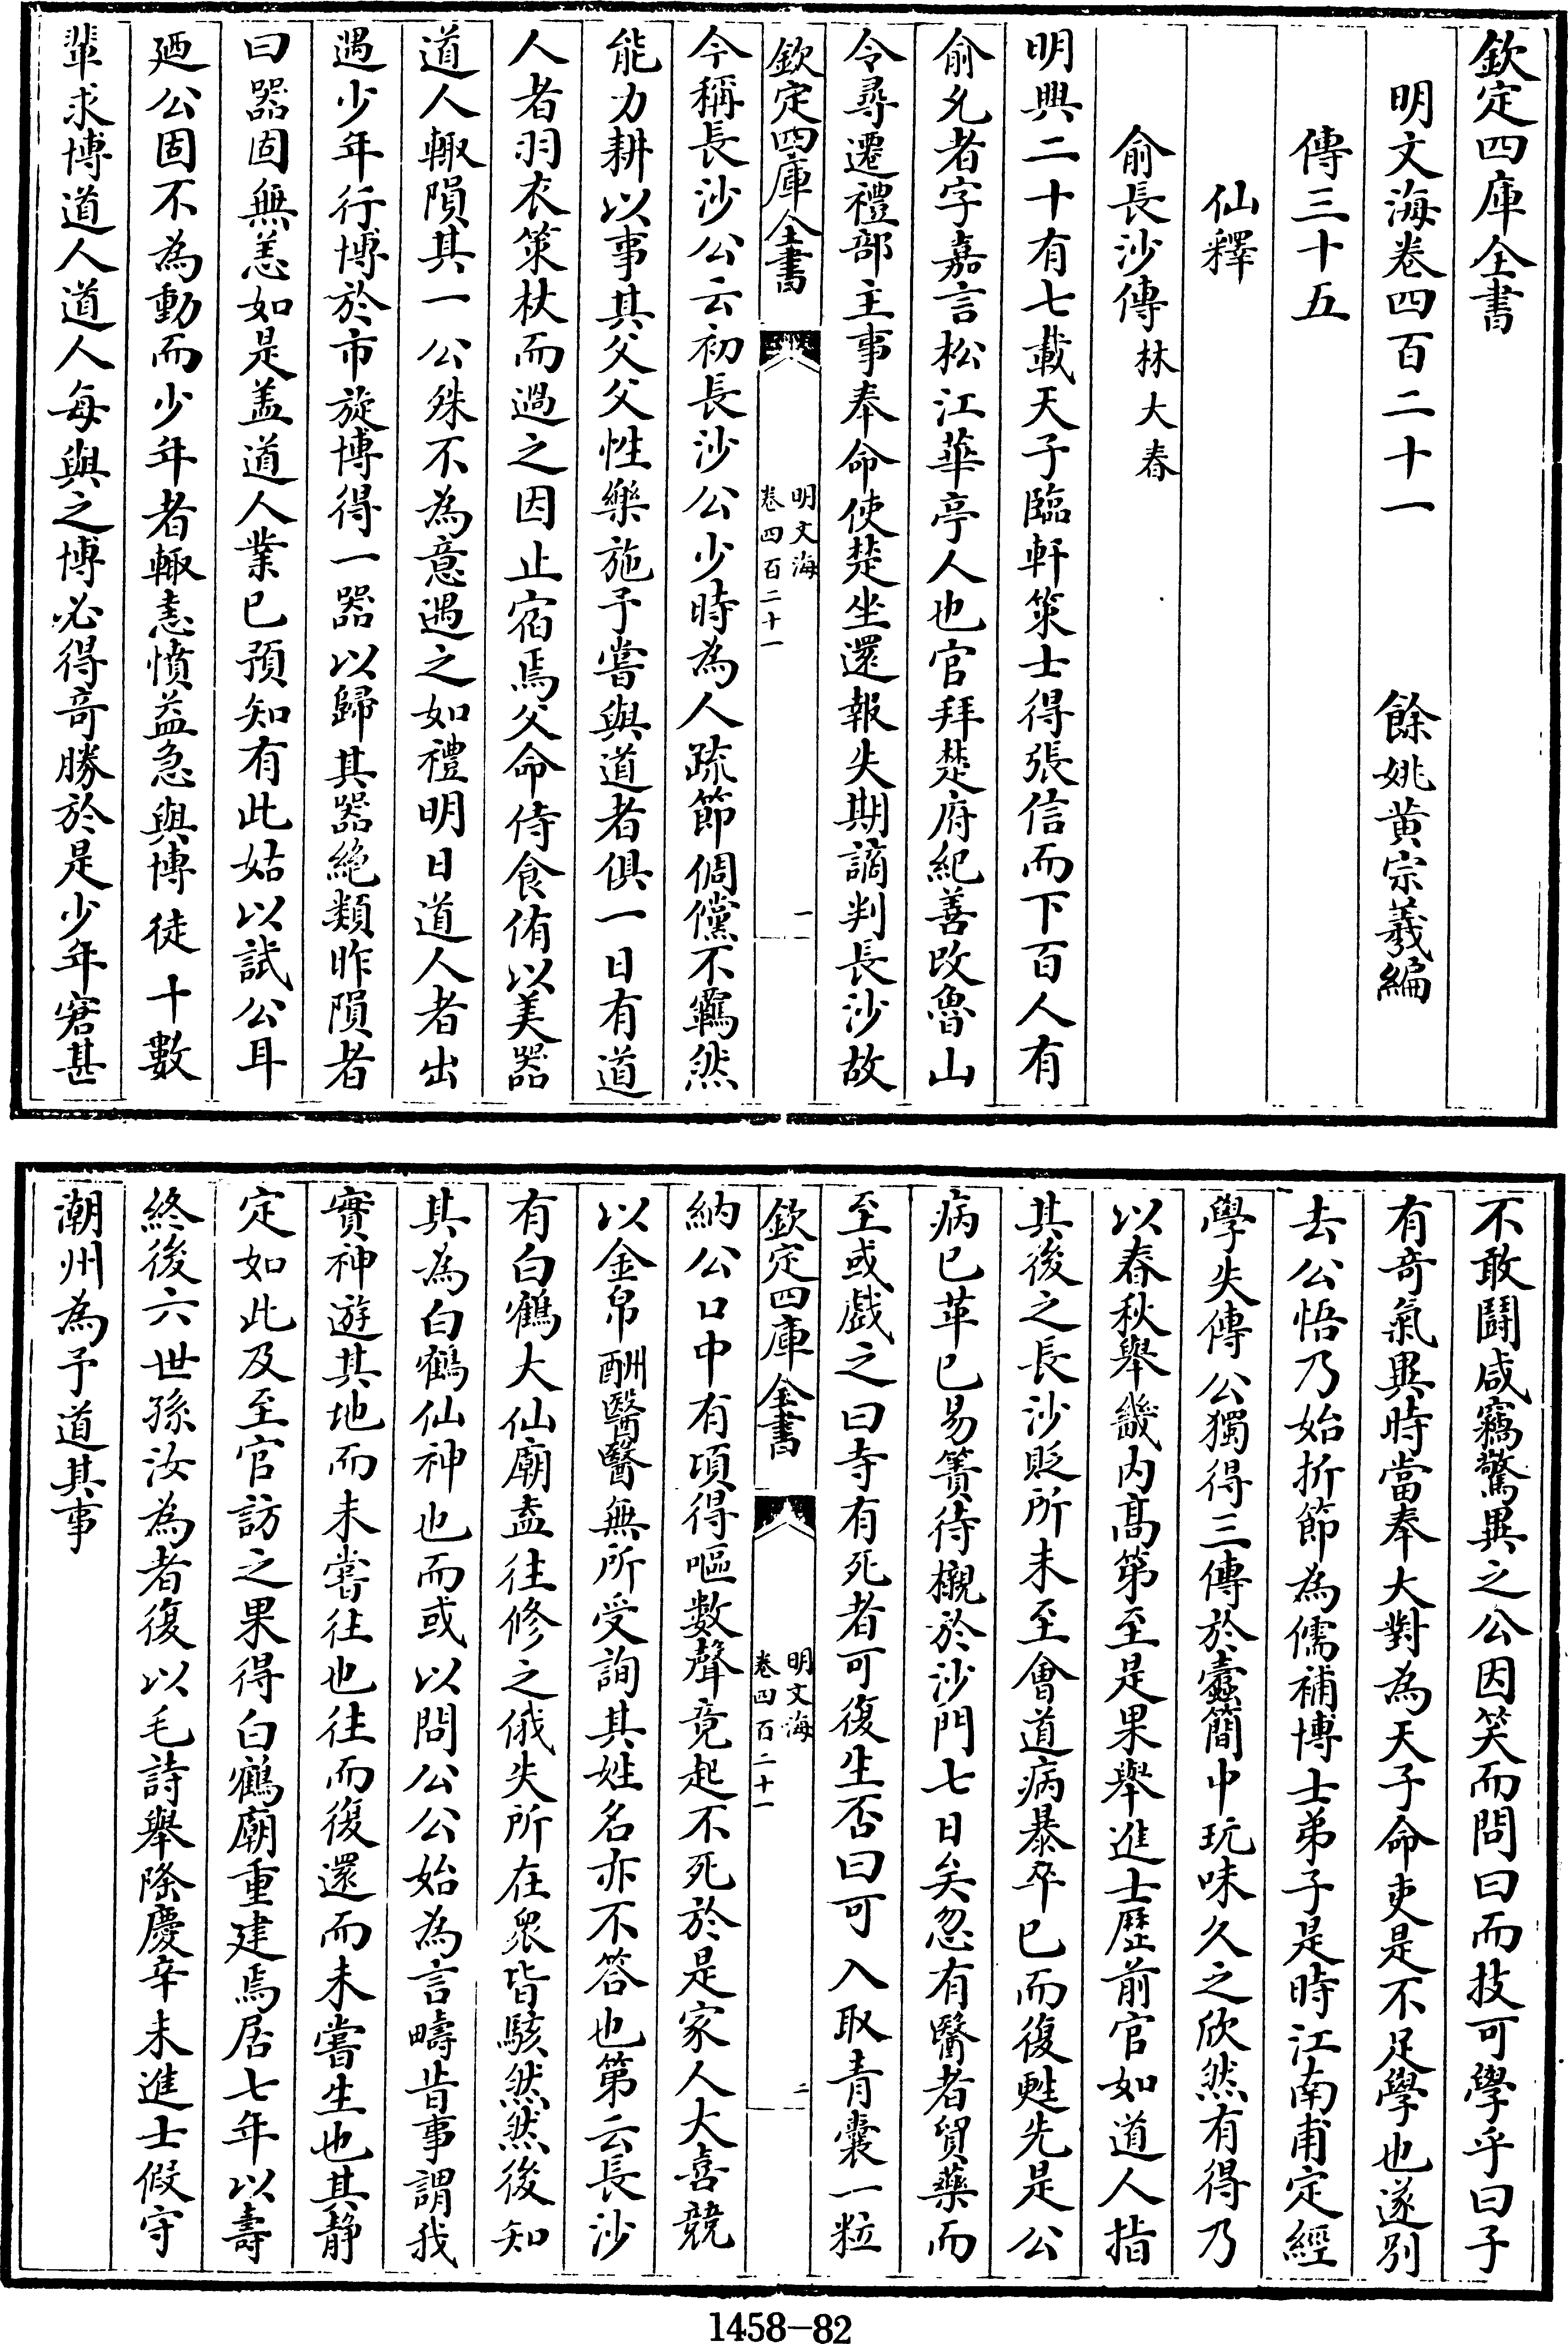 欽定四庫全書
明文海卷四百二十一　餘姚黄宗羲編
傳三十五
仙釋
俞長沙傳林大春
明興二十有七載天子臨軒策士得張信而下百人有
俞允者字嘉言松江華亭人也官拜楚府紀善改魯山
令尋遷禮部主事奉命使楚坐還報失期謫判長沙故
欽定四庫全書　明文海卷四百二十一　一
今稱長沙公云初長沙公少時為人疏節倜儻不羈然
能力耕以事其父父性樂施予嘗與道者俱一日有道
人者羽衣策杖而過之因止宿焉父命侍食侑以美器
道人輙隕其一公殊不為意遇之如禮明日道人者出
遇少年行博於市旋博得一器以歸其器絶類昨隕者
曰器固無恙如是盖道人業已預知有此姑以試公耳
廼公固不為動而少年者輙恚憤益急與博徒十數
輩求博道人道人每與之博必得奇勝於是少年窘甚
不敢鬪咸竊驚異之公因笑而問曰而技可學乎曰子
有奇氣異時當奉大對為天子命吏是不足學也遂别
去公悟乃始折節為儒補博士弟子是時江南甫定經
學失傳公獨得三傳於蠹簡中玩味久之欣然有得乃
以春秋舉畿内髙第至是果舉進士歴前官如道人指
其後之長沙貶所未至會道病暴卒已而復甦先是公
病已革已易簀待櫬於沙門七日矣忽有醫者貿藥而
至或戲之曰寺有死者可復生否曰可入取青囊一粒
欽定四庫全書　明文海卷四百二十一　二
納公口中有頃得嘔數聲竟起不死於是家人大喜競
以金帛酬醫醫無所受詢其姓名亦不答也第云長沙
有白鶴大仙廟盍往修之俄失所在衆皆駭然然後知
其為白鶴仙神也而或以問公公始為言疇昔事謂我
實神遊其地而未嘗往也往而復還而未嘗生也其静
定如此及至官訪之果得白鶴廟重建焉居七年以壽
終後六世孫汝為者復以毛詩舉隆慶辛未進士假守
潮州為予道其事
1458-82